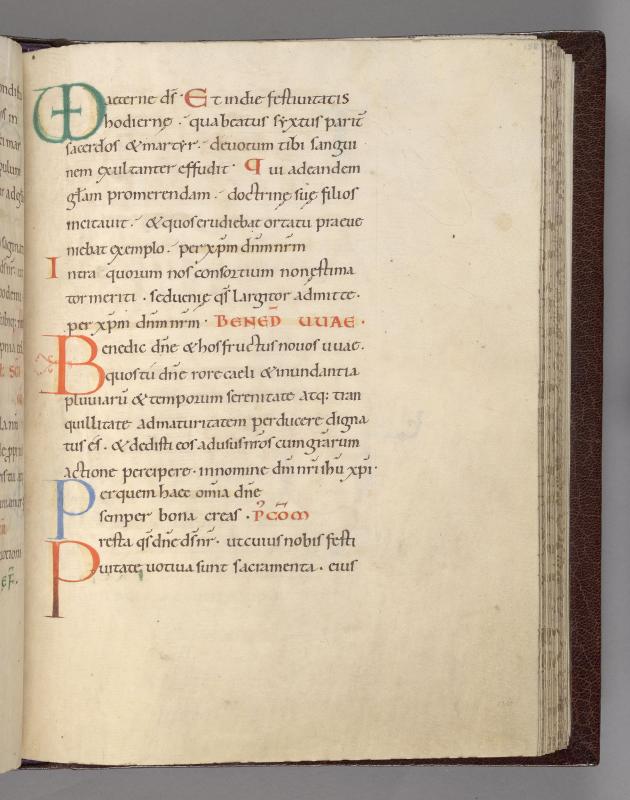 aeterne ds Et indie festivitatis
hodierne . qua beatus syxtus parit
sacerdos & martyr . devotum tibi sangui
nem exultanter effudit . Qui ad eandem
glam promerendam . doctrinę suę filios
incitavit . & quos erudiebat ortatu praeve
niebat exemplo . per xpm dnm nrm
Intra quorum nos consortium non ęstima
tor meriti . sed venię qs largitor admitte .
per xpm dnm nrm . BENED UUAE .
Benedic dne & hos fructus novos uvae .
quos tu dne rore caeli & inundantia
pluviaru & temporum serenitate atq: tran
quillitate ad maturitatem perducere digna
tus es . & dedisti eos ad usus nros cum gratiarum
actione percipere . in nomine dni nri ihu xpi .
Per quem haec omia dne
semper bona creas . P COM
Presta qs dne ds nr . ut cuius nobis festi
vitate votiva sunt sacramenta . eius